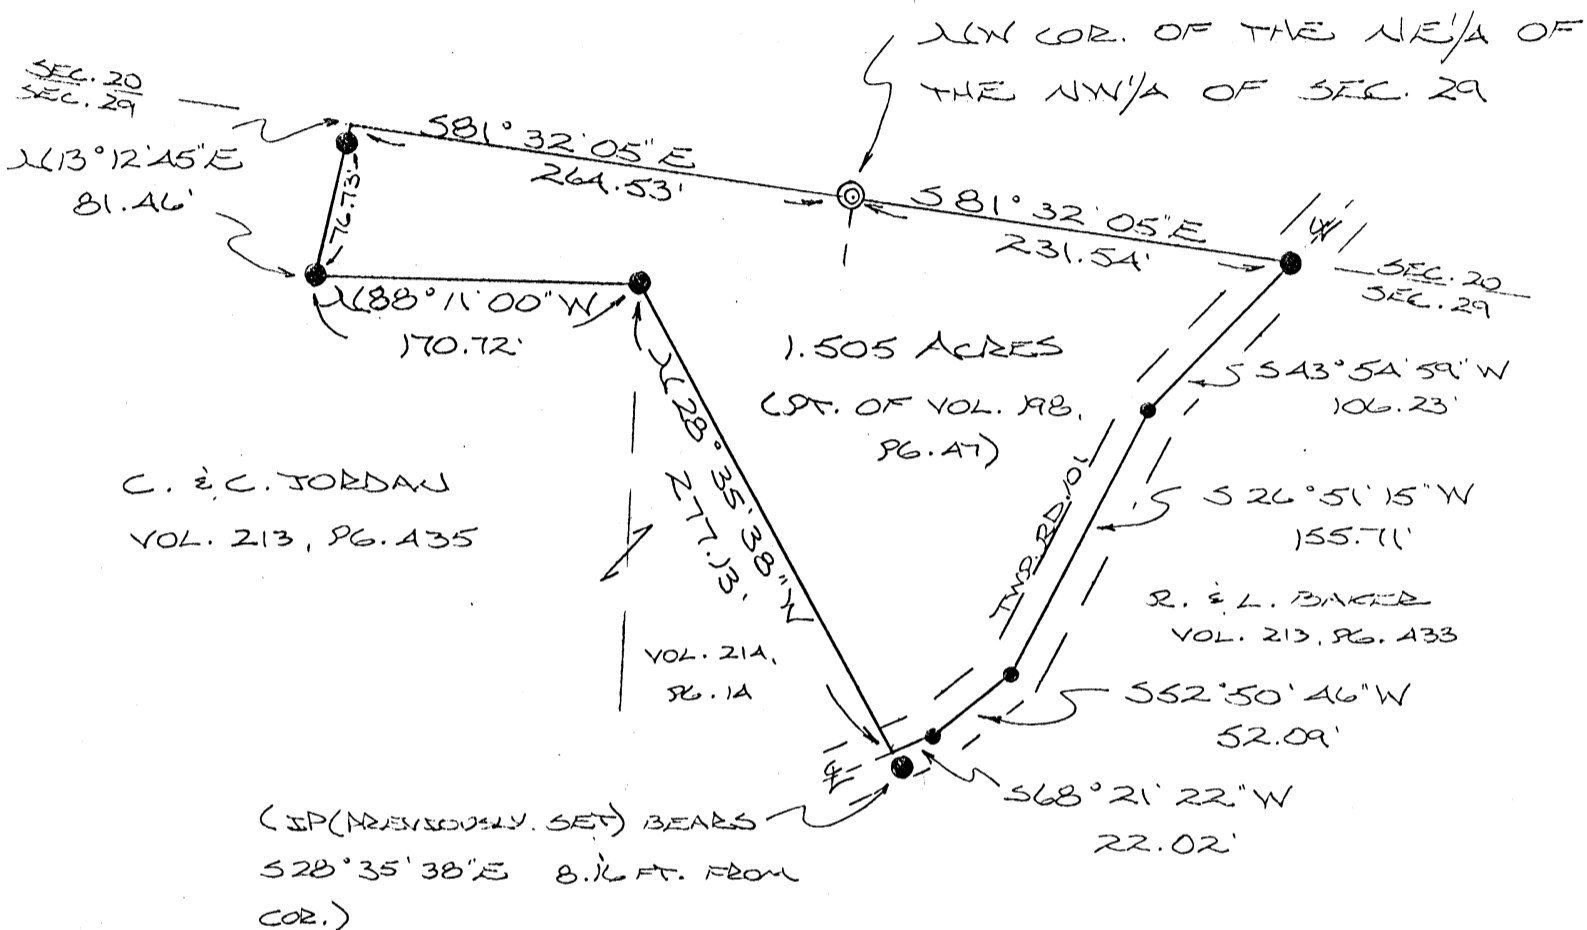 NW COR. OF THE NE 1/4 OF
THE NW 1/4 OF SEC. 29
SEC. 20
SEC. 29
N13°12'45"E
81.46'
76.73'
S81°32'05"E
264.53'
S81°32'05"E
231.54'
SEC. 20
SEC. 29
N88°11'00"W
170.72'
1.505 ACRES
(PT. OF VOL. 198,
PG. 47)
S43°54'59"W
106.23'
N28°35'38"W
277.13'
C. & C. JORDAN
VOL. 213, PG. 435
TWP. RD. 101
S26°51'15"W
155.71'
R. & L. BAKER
VOL. 213, PG. 433
VOL. 214,
PG. 14
S52°50'46"W
52.09'
S68°21'22"W
22.02'
(IP (PREVIOUSLY SET) BEARS
S28°35'38"E 8.16 FT. FROM
COR.)